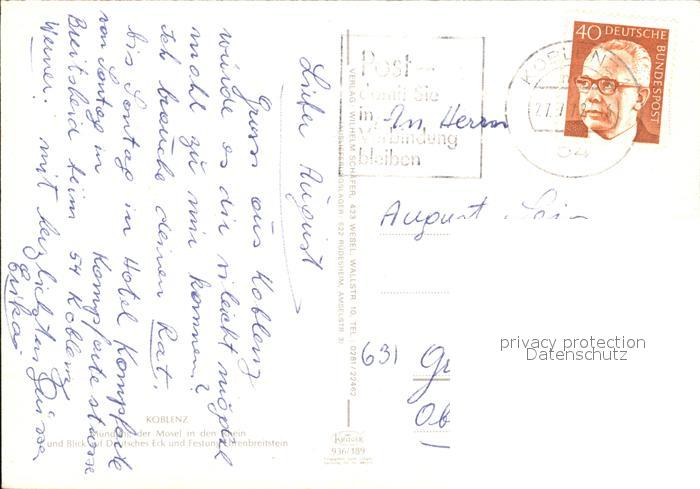 Lieber August
Gruss aus Koblenz
würde es dir vileicht möglich
macht zu mir kommen?
ich brauche deinen Rat.
bis Sontag in Hotel Kompforte
von Sontag in Kompfortestrasse
Breitscheid beim 54 Koblenz
Werner. mit herzlichsten Grüsse
Erika
KOBLENZ
Mündung der Mosel in den Rhein
und Blick auf Deutsches Eck und Festung Ehrenbreitstein
VERLAG WILHELM SCHÄFER, 423 WESEL, WALLSTR. 10, TEL. 0281/22462
AUSLIEFERUNGSLAGER: 622 RÜDESHEIM, AMSELSTR. 31
Krüger
936/189
Post-
damit Sie
in
Verbindung
bleiben
40 DEUTSCHE
BUNDESPOST
KOBLENZ
54
An Herrn
August
631
Ob
privacy protection
Datenschutz